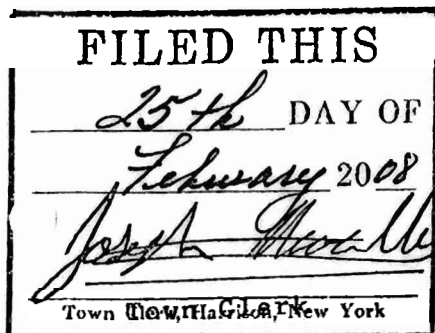 FILED THIS
25th DAY OF
February 2008
Joseph
Town Clerk, Harrison, New York